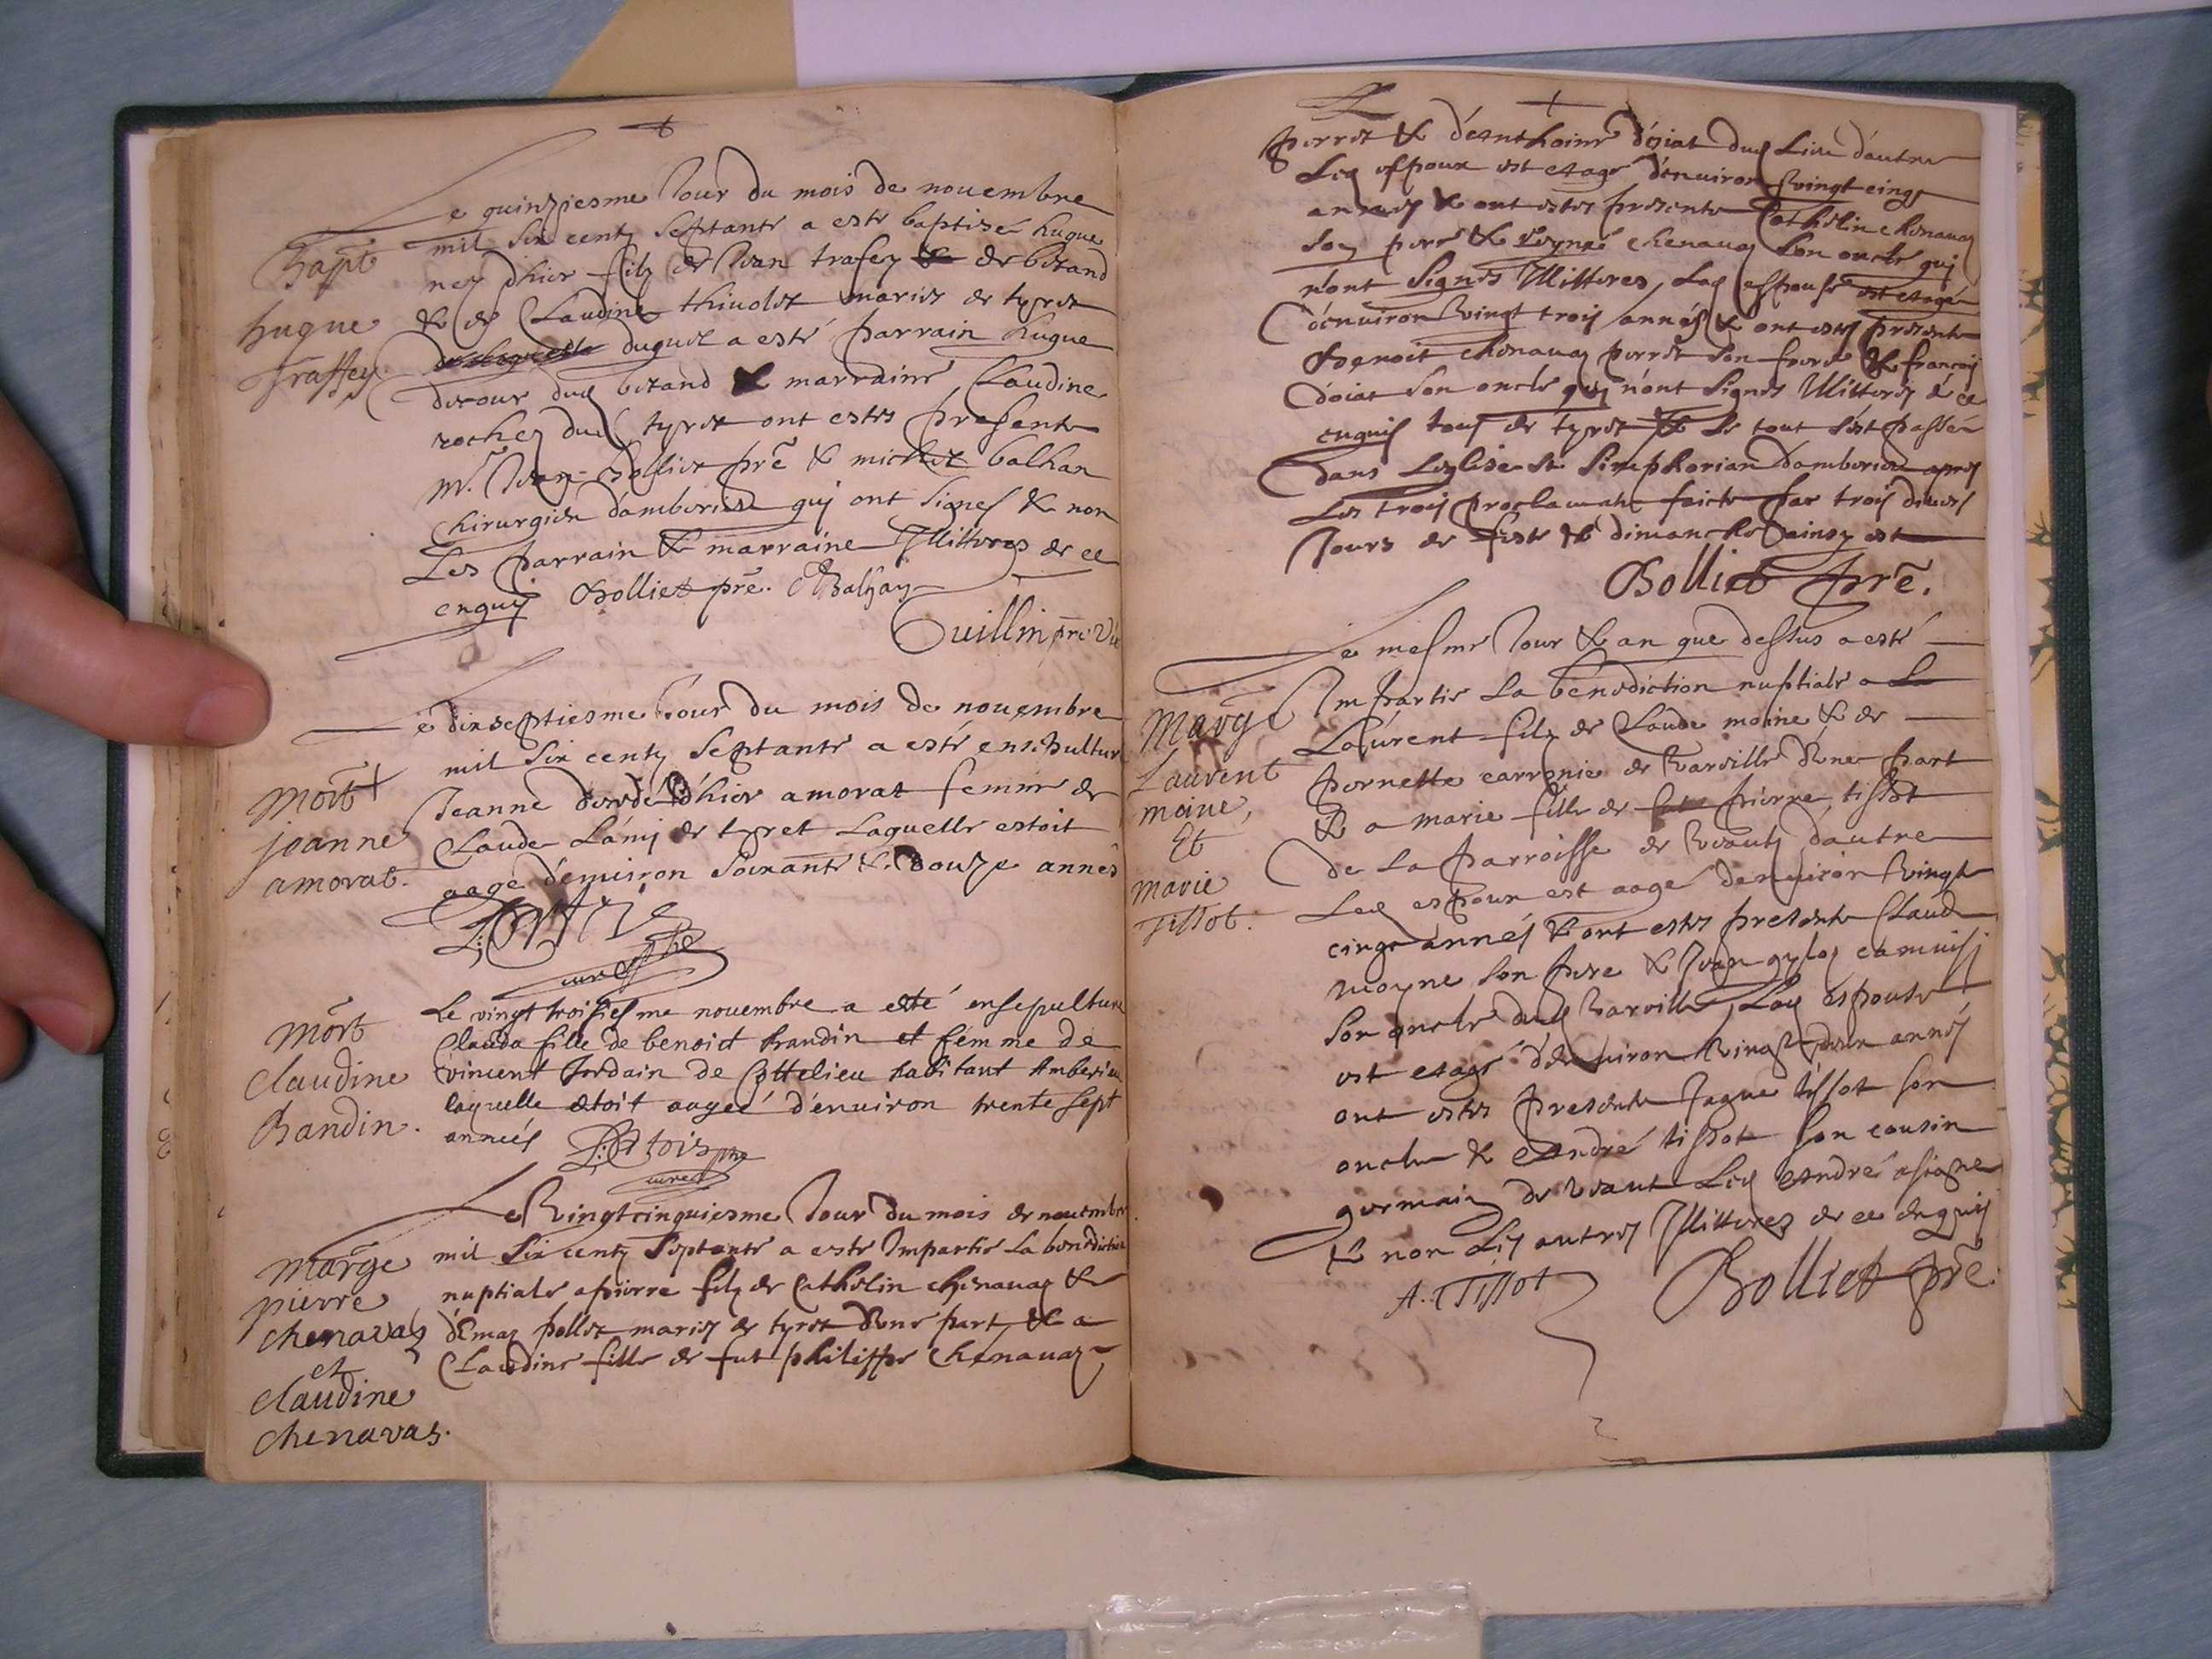 Le quinziesme Jour du mois de nouembre
mil six centz septante a este baptisé hugue
nez dhier filz de Jean trafey de bizand
& de Claudine thiuolet mariez de tyret
duquel a esté parrain hugue
durour dud bizand & marraine Claudine
rochez dud tyret ont estes presents
Mr. Jean Bolliet prẽ & michel balhan
Chirurgien d'amberieu quj ont signes & non
Les parrain & marraine Illitteres de ce
enquis Bolliet prẽ. Balhan
Cuillin prẽ Vic
Bapt
hugue
Traffey
Le dixseptiesme Jour du mois de nouembre
mil six centz septante a esté ensepulture
Jeanne decedé d'hier amorat femme de
Claude Lámj de tyret Laquelle estoit
aagé d'enuiron soixante & douze annés
curé
Mort +
jeanne
amorat.
Le vingt troisiesme nouembre a esté ensepulture
Clauda fille de benoict bandin et femme de
vincent Jordain de Cottelieu habitant Amberieu
laquelle étoit aagée d'enuiron trente sept
annués
curé
Mort
Claudine
Bandin.
Le Vingtcinquiesme Jour du mois de nouembre
mil six centz septante a esté Impartie La benediction
nuptiale a pierre filz de Cathelin chenauaz &
d'Emaz pollet mariez de tyret d'Vne part & a
Claudine fille de fut philippe Chenauaz
Marge
pierre
chenavaz
et
claudine
chenavas.
perret & d'anthoine doiat dud Lieu d'autre
Led espoux est eagé d'enuiron vingt cinq
annés & ont estes presents Cathelin chenauaz
son pere & chenauaz son oncle quj
n'ont signés Illitteres, Lad espouse est eagé
d'enuiron vingt trois annés & ont estes presents
Benoit chenauaz perret son frere & françois
doiat son oncle quj n'ont signés Illitteres de ce
enquis tous de tyret & Le tout s'est passé
dans L'eglise St Simphorian d'amberieu apres
Les trois proclamatz faicte par trois diuers
Jours de feste & dimanche ainsy est
Bolliet prẽ.
Le mesme Jour & an que dessus a esté
Impartie La benediction nuptiale a
Laurent filz de Claude moine & de
pernette carronier de Varville d'Vne part
& a marie fille de pierre tissot
de La parroisse de Vaux d'autre
Led espoux est aagé d'enuiron vingt
cinqt annés & ont estes presents Claude
moyne son pere & Jean
son oncle dud Varville, Lad espouse
est eagé d'enuiron vingt deux annés
ont estes presents Jaque tissot son
oncle & André tissot son cousin
germain de Vaux Led André a signe
& non Les autres Illitteres de ce enquis
A. Tissot Bolliet prẽ
Marge
Laurent
moine,
Et
marie
Tissot.